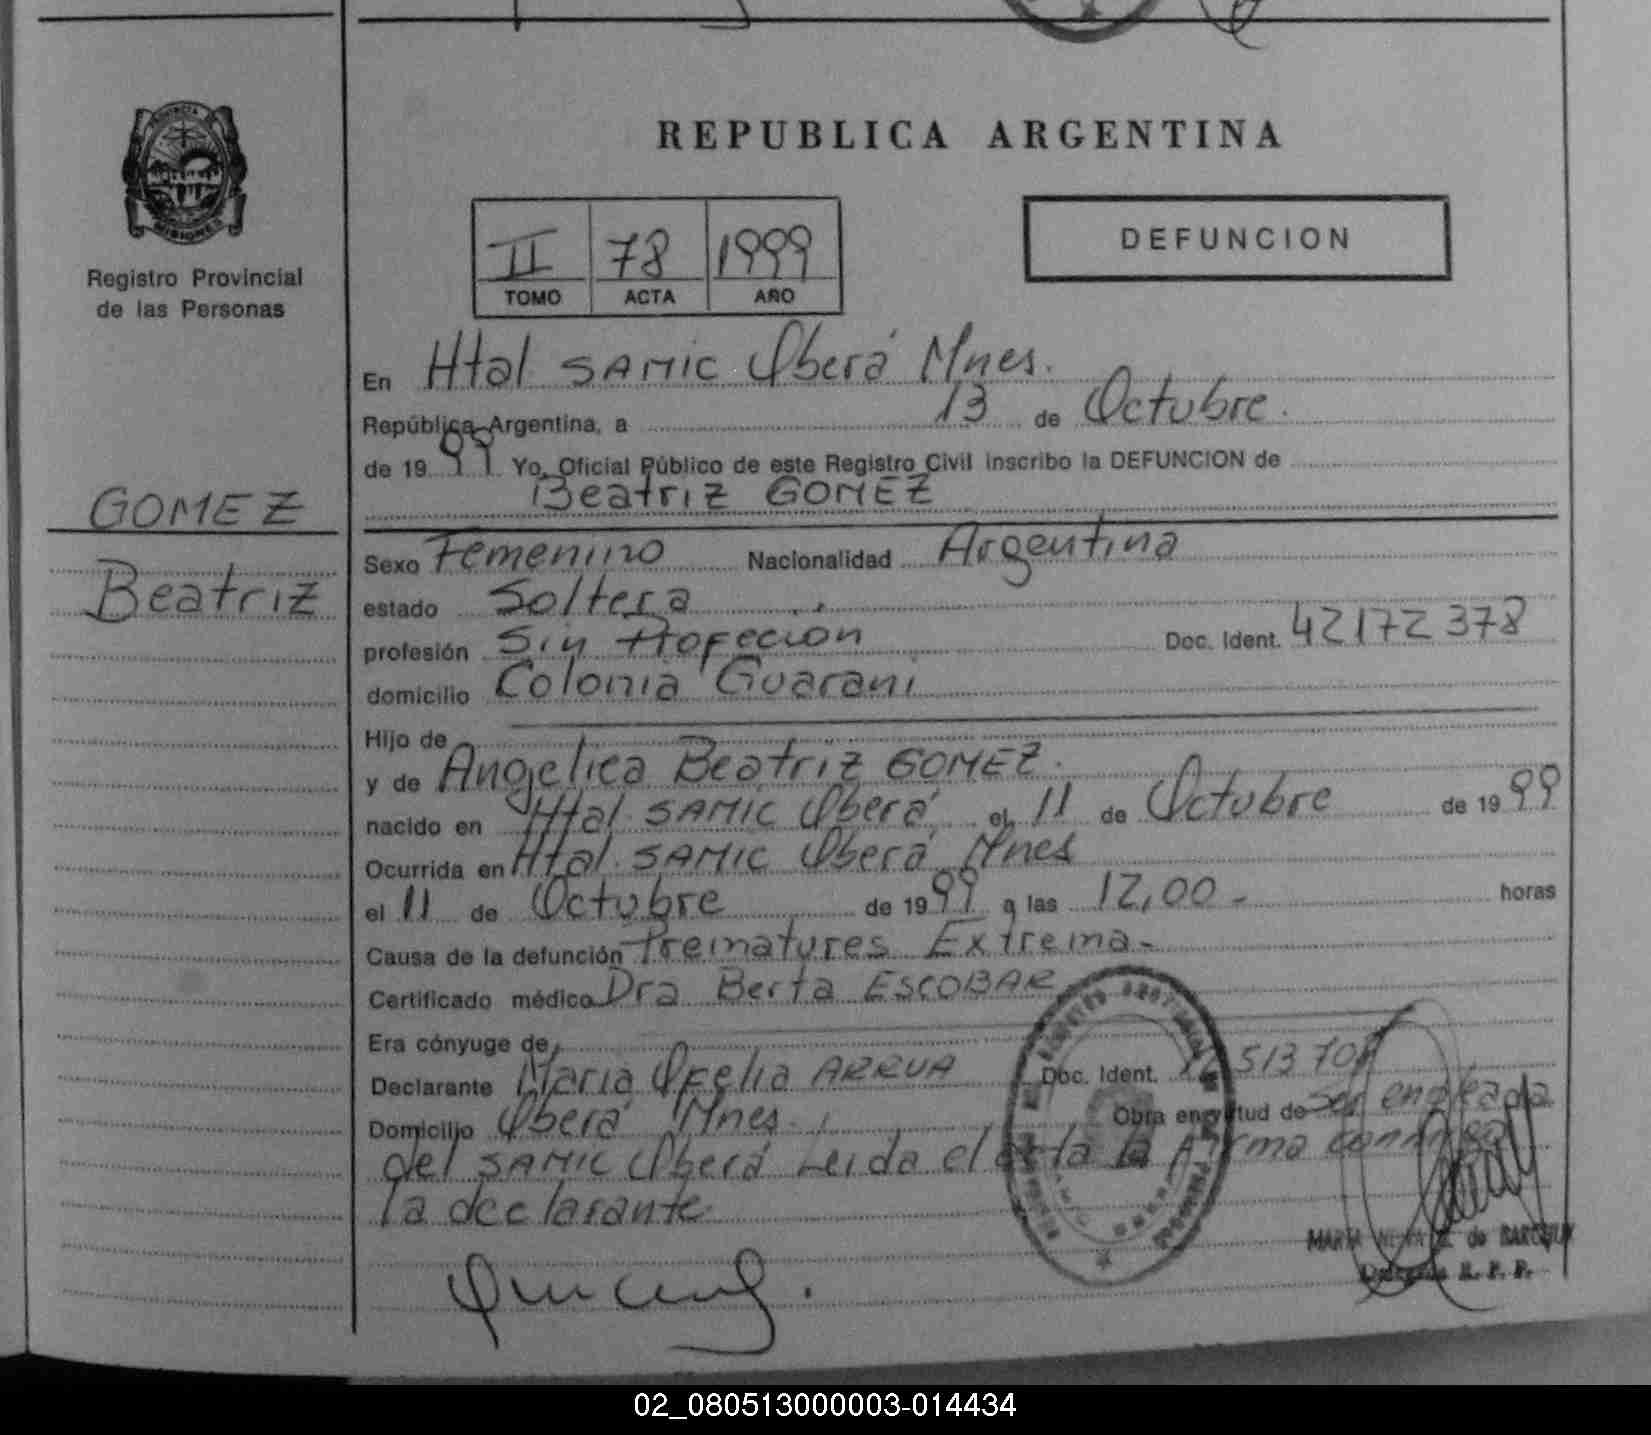 REPUBLICA ARGENTINA
PROVINCIA DE
MISIONES
Registro Provincial
de las Personas
II 78 1999
TOMO ACTA AÑO
DEFUNCION
En Htal SAMIC Oberá Mnes.
República Argentina, a 13 de Octubre.
de 1999 Yo, Oficial Público de este Registro Civil inscribo la DEFUNCION de
Beatriz GOMEZ
GOMEZ
Beatriz
Sexo Femenino Nacionalidad Argentina
estado Soltera
profesión Sin Profecion Doc. Ident. 42172378
domicilio Colonia Guarani
Hijo de
y de Angelica Beatriz GOMEZ.
nacido en Htal SAMIC Oberá el 11 de Octubre de 1999
Ocurrida en Htal. SAMIC Oberá Mnes
el 11 de Octubre de 1999 a las 12,00 - horas
Causa de la defunción Prematures Extrema -
Certificado médico Dra Berta ESCOBAR
Era cónyuge de
Declarante Maria Ofelia ARRUA Doc. Ident. 513708
Domicilio Oberá Mnes. Obra en virtud de Ser empleada
del SAMIC Oberá Leida el acta la firma conmigo
la declarante
MARIA de
R. P. P.
02_080513000003-014434